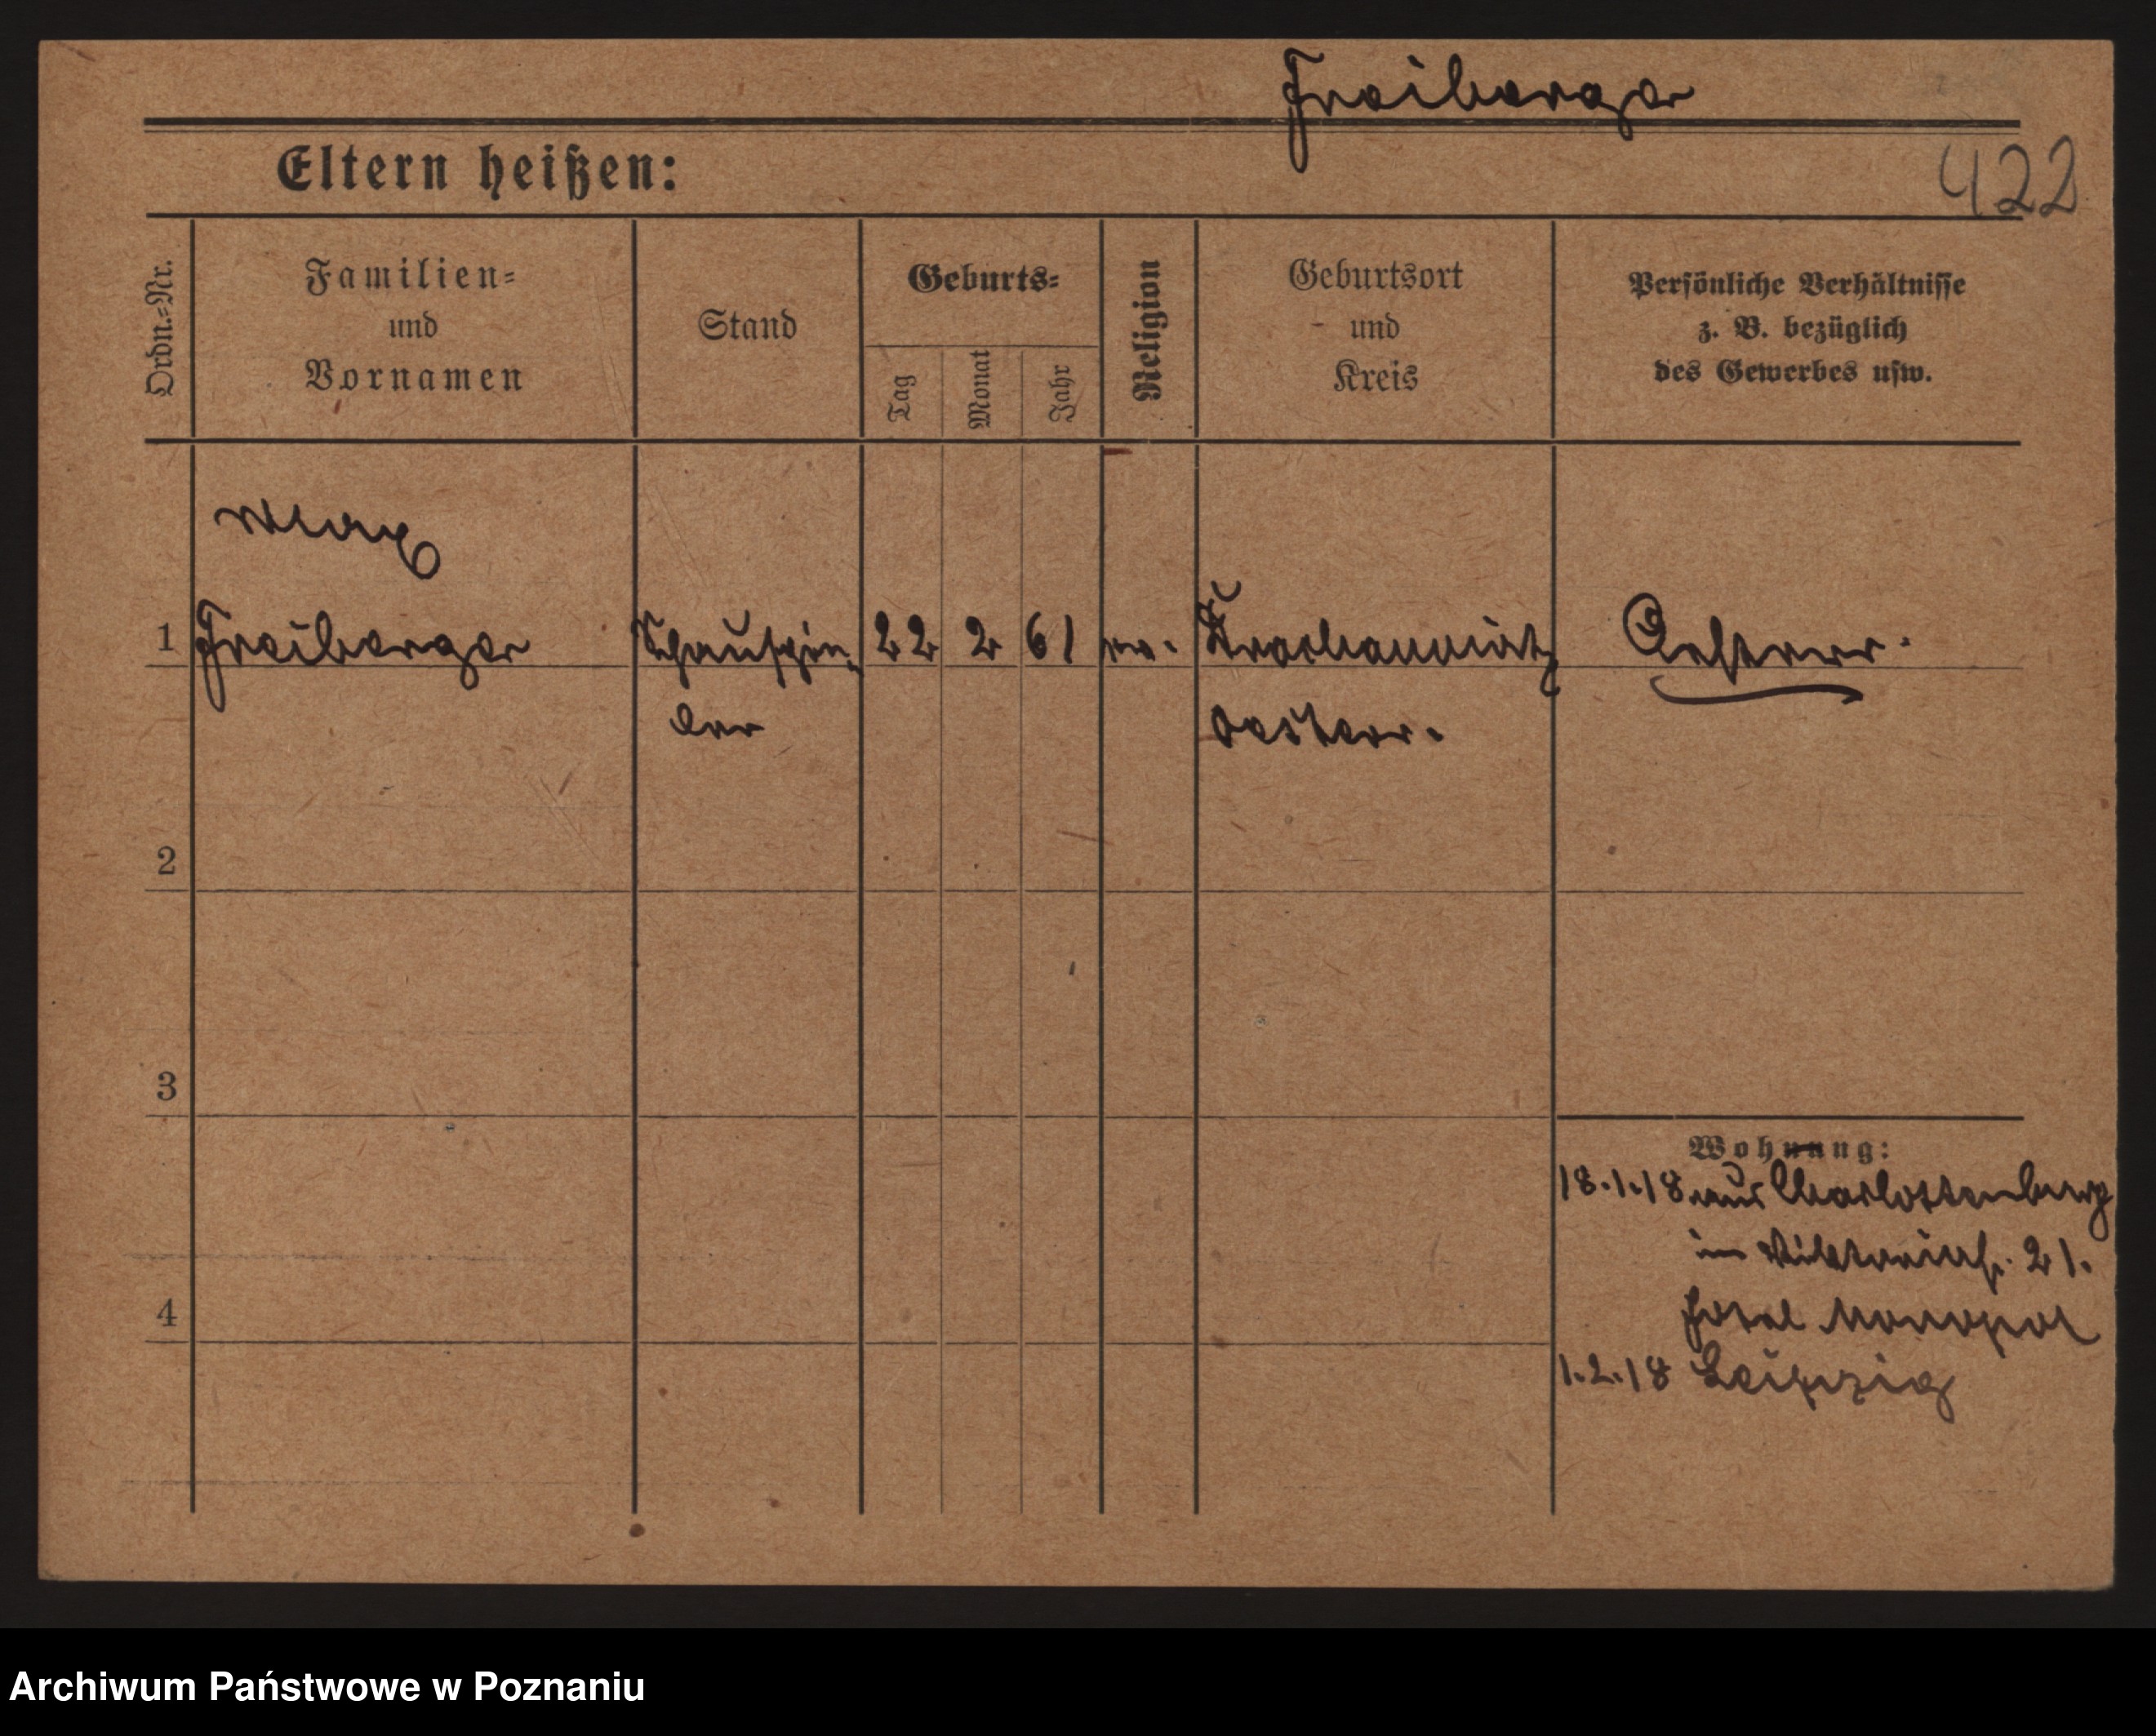 Freiberger
Eltern heißen:
422
Ordn.=Nr.
Familien=
und
Vornamen
Stand
Geburts=
Tag
Monat
Jahr
Religion
Geburtsort
und
Kreis
Persönliche Verhältnisse
z. B. bezüglich
des Gewerbes usw.
Max
1 Freiberger 22 2 61 Oesterr.
Oesterr.
2
3
Wohnung:
18.1.18 aus Charlottenburg
im Viktoriastr. 21.
4
Hotel Monopol
1.2.18 Leipzig
Archiwum Państwowe w Poznaniu